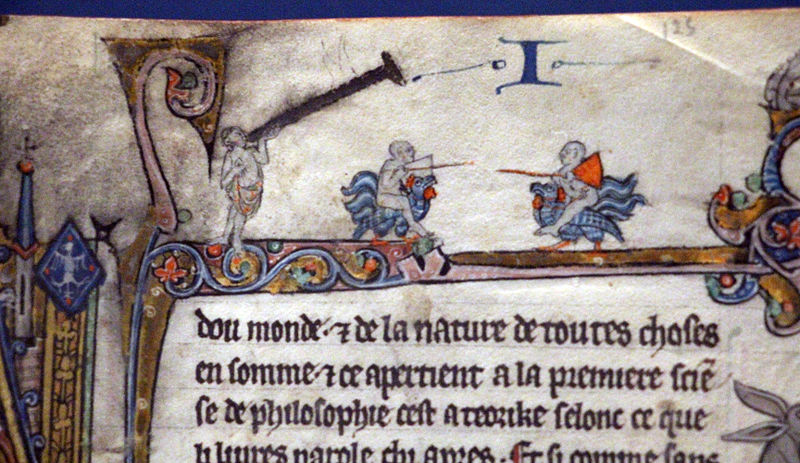 125
I
dou monde · ⁊ de la nature de toutes choses
en somme · ⁊ ce apertient a la premiere sciẽ
se de philosophie cest a teorike selonc ce que
li livres parole chi apres · Et si comme sans